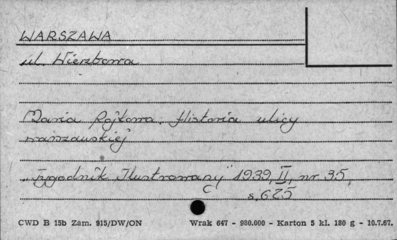 WARSZAWA
ul. Wierzbowa
Maria Rojkowa. Historia ulicy
warszawskiej
"Tygodnik Ilustrowany" 1939, II, nr 35,
s, 625
CWD B 15b Zam. 915/DW/ON Wrak 647 - 900.000 - Karton 5 kl. 180 g - 10.7.67.